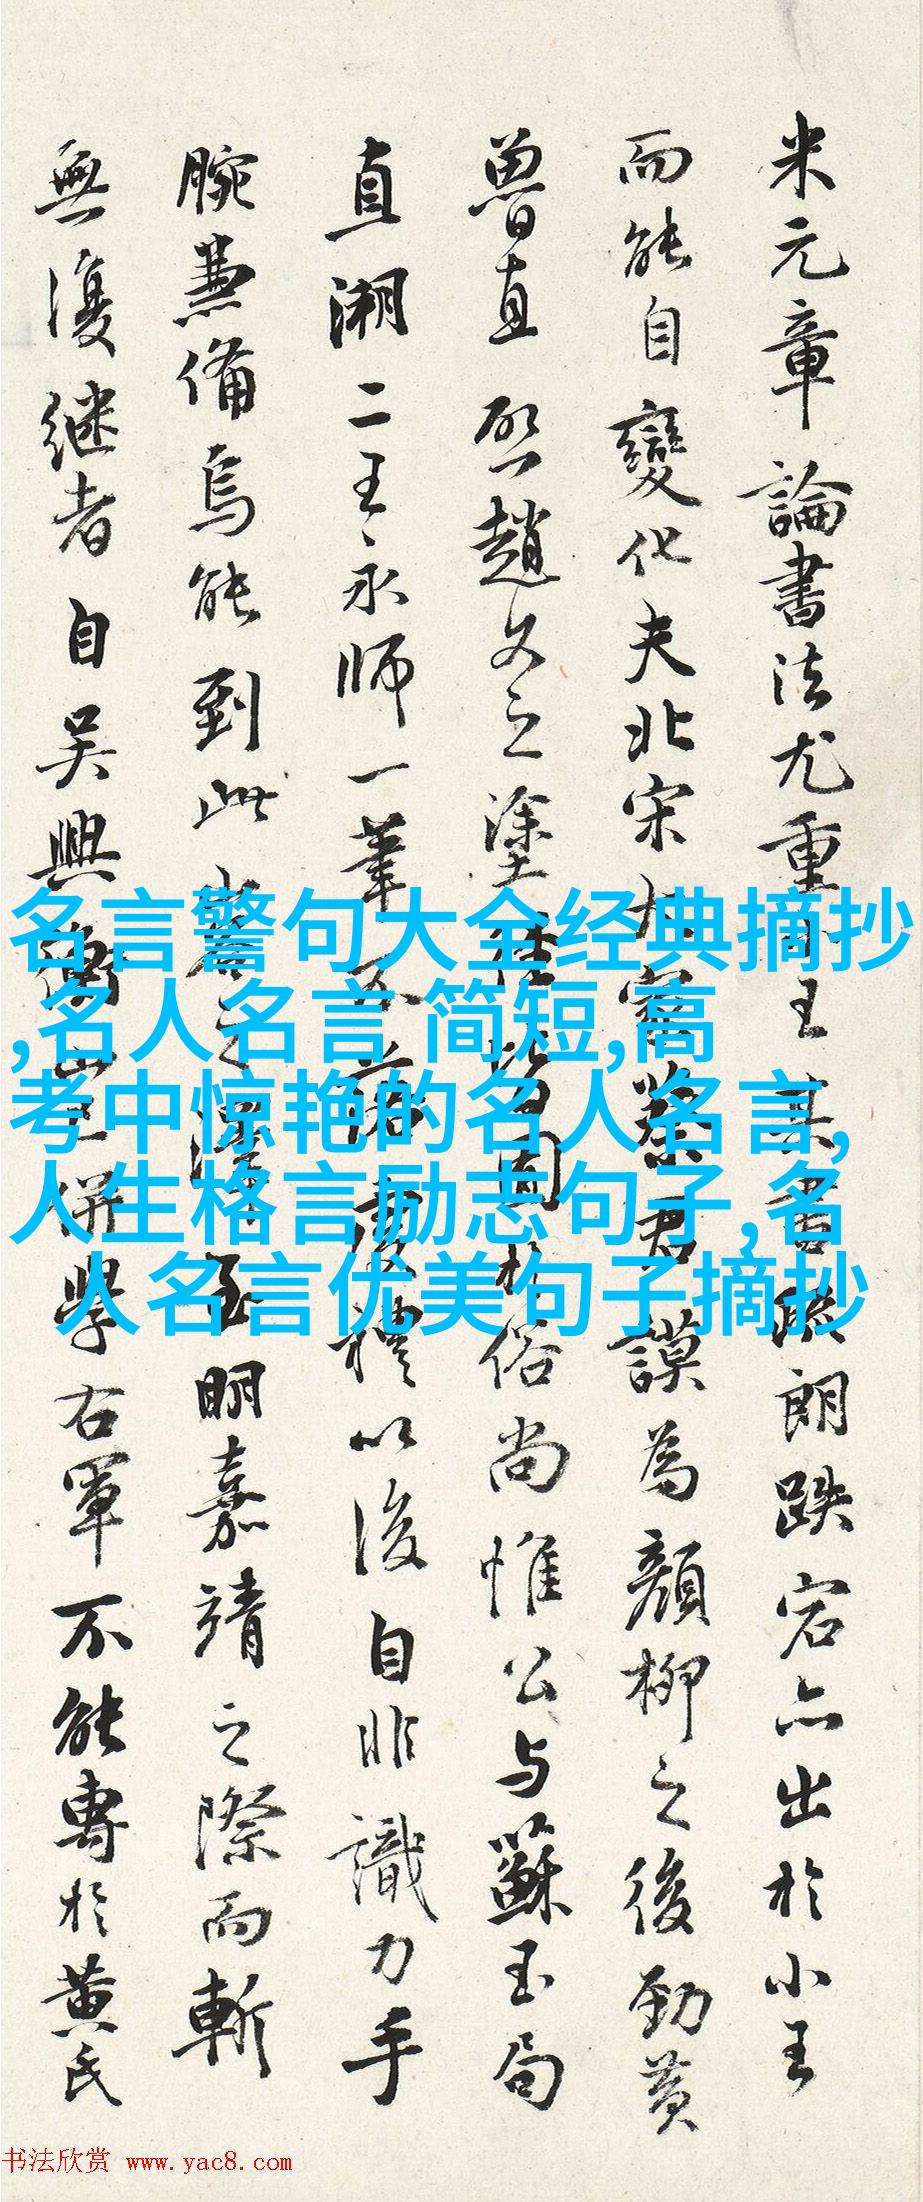 米元章論書法尤重小王其書縱朗跌宕亦出於小王
而能自變化夫北宋大家蔡君謨為顏柳之後勁黃
魯直 趙文之塗 圓於俗尚惟公与蘇玉局
直溯二王永師一筆不 後禮以後自非識力手
腕兼備烏能到此 之 至明嘉靖之際而斬
無復继者自吴興 併學右軍不能專於黄氏
名言警句大全经典摘抄
,名人名言 简短,高
考中惊艳的名人名言,
人生格言励志句子,名
人名言优美句子摘抄
书法欣赏 www.yac8.com